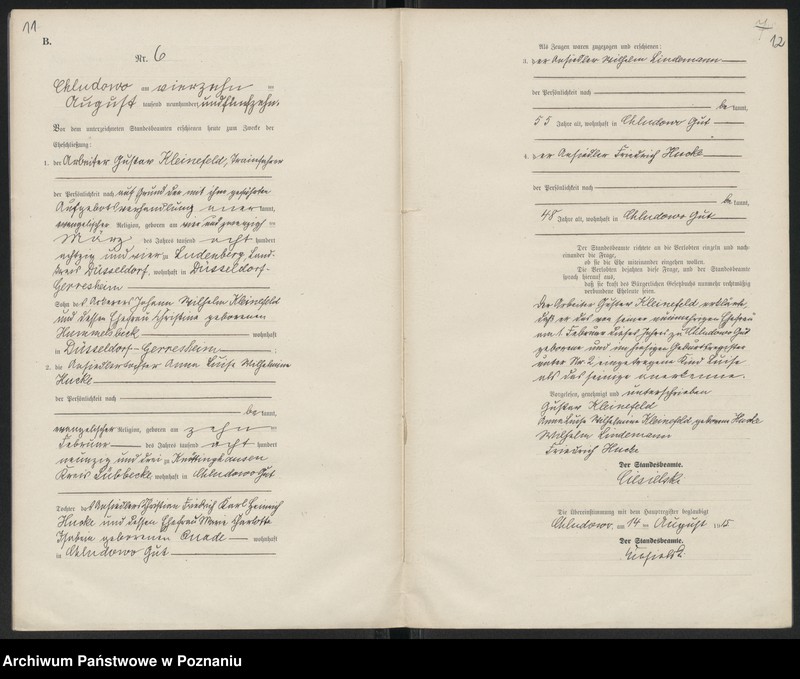 11
B.
Nr. 6
Chludowo am vierzehn ten
August tausend neunhundert und fünfzehn.
Vor dem unterzeichneten Standesbeamten erschienen heute zum Zwecke der
Eheschließung:
1. der Arbeiter Gustav Kleinefeld,
der Persönlichkeit nach auf Grund der mit ihm geführten
Aufgebotsverhandlung kannt,
evangelischer Religion, geboren am ten
März des Jahres tausend acht hundert
achtzig und vier zu Ludenberg, Land-
kreis Düsseldorf, wohnhaft in Düsseldorf-
Gerresheim
Sohn des Johann Wilhelm Kleinefeld
und dessen Ehefrau Christine geborenen
Hummelsbeck wohnhaft
in Düsseldorf-Gerresheim;
2. die Ansiedlertochter Anna Luise Wilhelmine
Hucke
der Persönlichkeit nach
be kannt,
evangelischer Religion, geboren am zehn ten
Februar des Jahres tausend acht hundert
neunzig und drei zu
Kreis Lübbecke, wohnhaft in Chludowo Gut
Tochter des Ansiedlers Christian Friedrich Karl Heinrich
Hucke und dessen Ehefrau Marie Charlotte
geborenen wohnhaft
in Chludowo Gut
12
Als Zeugen waren zugezogen und erschienen:
3. der Ansiedler Wilhelm Lindemann
der Persönlichkeit nach
be kannt,
55 Jahre alt, wohnhaft in Chludowo Gut
4. der Ansiedler Friedrich Hucke
der Persönlichkeit nach
be kannt,
48 Jahre alt, wohnhaft in Chludowo Gut
Der Standesbeamte richtete an die Verlobten einzeln und nach-
einander die Frage,
ob sie die Ehe miteinander eingehen wollen.
Die Verlobten bejahten diese Frage, und der Standesbeamte
sprach hierauf aus,
daß sie kraft des Bürgerlichen Gesetzbuchs nunmehr rechtmäßig
verbundene Eheleute seien.
Der Arbeiter Gustav Kleinefeld erklärt,
daß er das von seiner nunmehrigen Ehefrau
am 1. Februar dieses Jahres zu Chludowo Gut
geborene und im hiesigen Geburtsregister
unter Nr. 2 eingetragene Kind Luise
als das seinige anerkenne.
Vorgelesen, genehmigt und unterschrieben
Gustav Kleinefeld
Anna Luise Wilhelmine Kleinefeld geborene Hucke
Wilhelm Lindemann
Friedrich Hucke
Der Standesbeamte.
Die Übereinstimmung mit dem Hauptregister beglaubigt
Chludowo, am 14 ten August 1915
Der Standesbeamte.
Archiwum Państwowe w Poznaniu